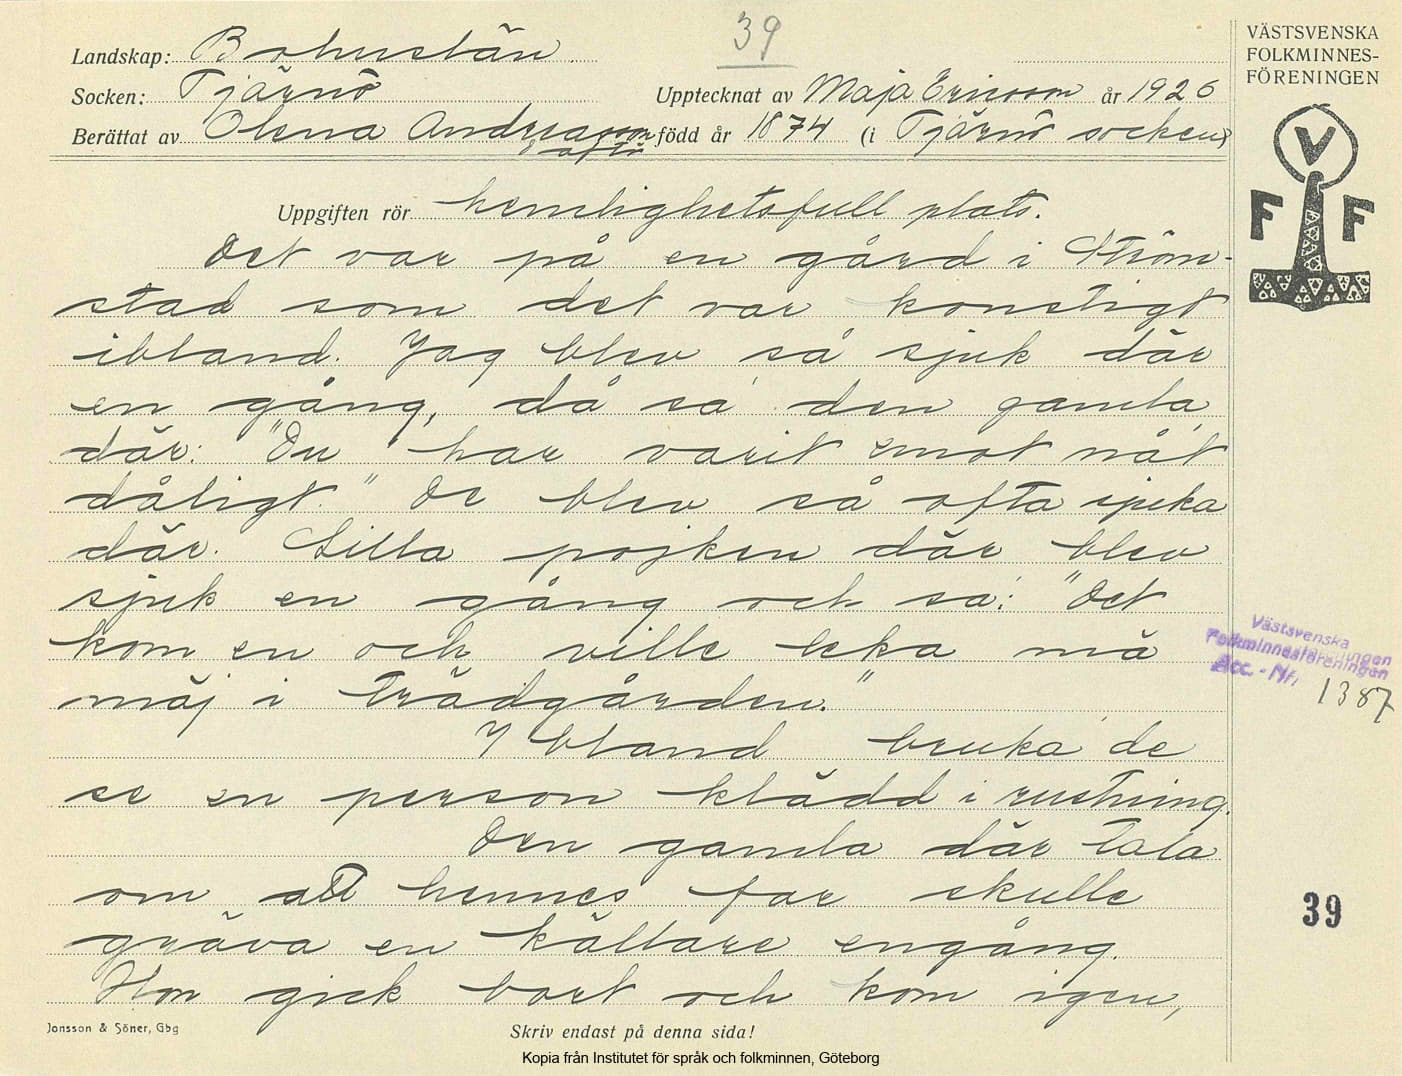 39
VÄSTSVENSKA
FOLKMINNES-
FÖRENINGEN
Landskap: Bohuslän
Socken: Tjärnö
Upptecknat av Maja Ericsson år 1926
Berättat av Olena Andreasson född år 1874 (i Tjärnö socken)
V
F F
Uppgiften rör hemlighetsfull plats.
Det var på en gård i Ström-
stad som det var konstigt
ibland. Jag blev så sjuk där
en gång, då sa den gamla
där: "Du har varit emot nåt
dåligt." De blev så ofta sjuka
där. Lilla pojken där blev
sjuk en gång och sa: "Det
kom en och ville leka mä
mäj i trädgården."
Ibland bruka de
se en person klädd i rustning.
Den gamla där tala
om att hennes far skulle
gräva en källare engång.
Hon gick bort och kom igen,
Västsvenska
Folkminnesföreningen
Acc. - Nr. 1387
39
Jonsson & Söner, Gbg
Skriv endast på denna sida!
Kopia från Institutet för språk och folkminnen, Göteborg